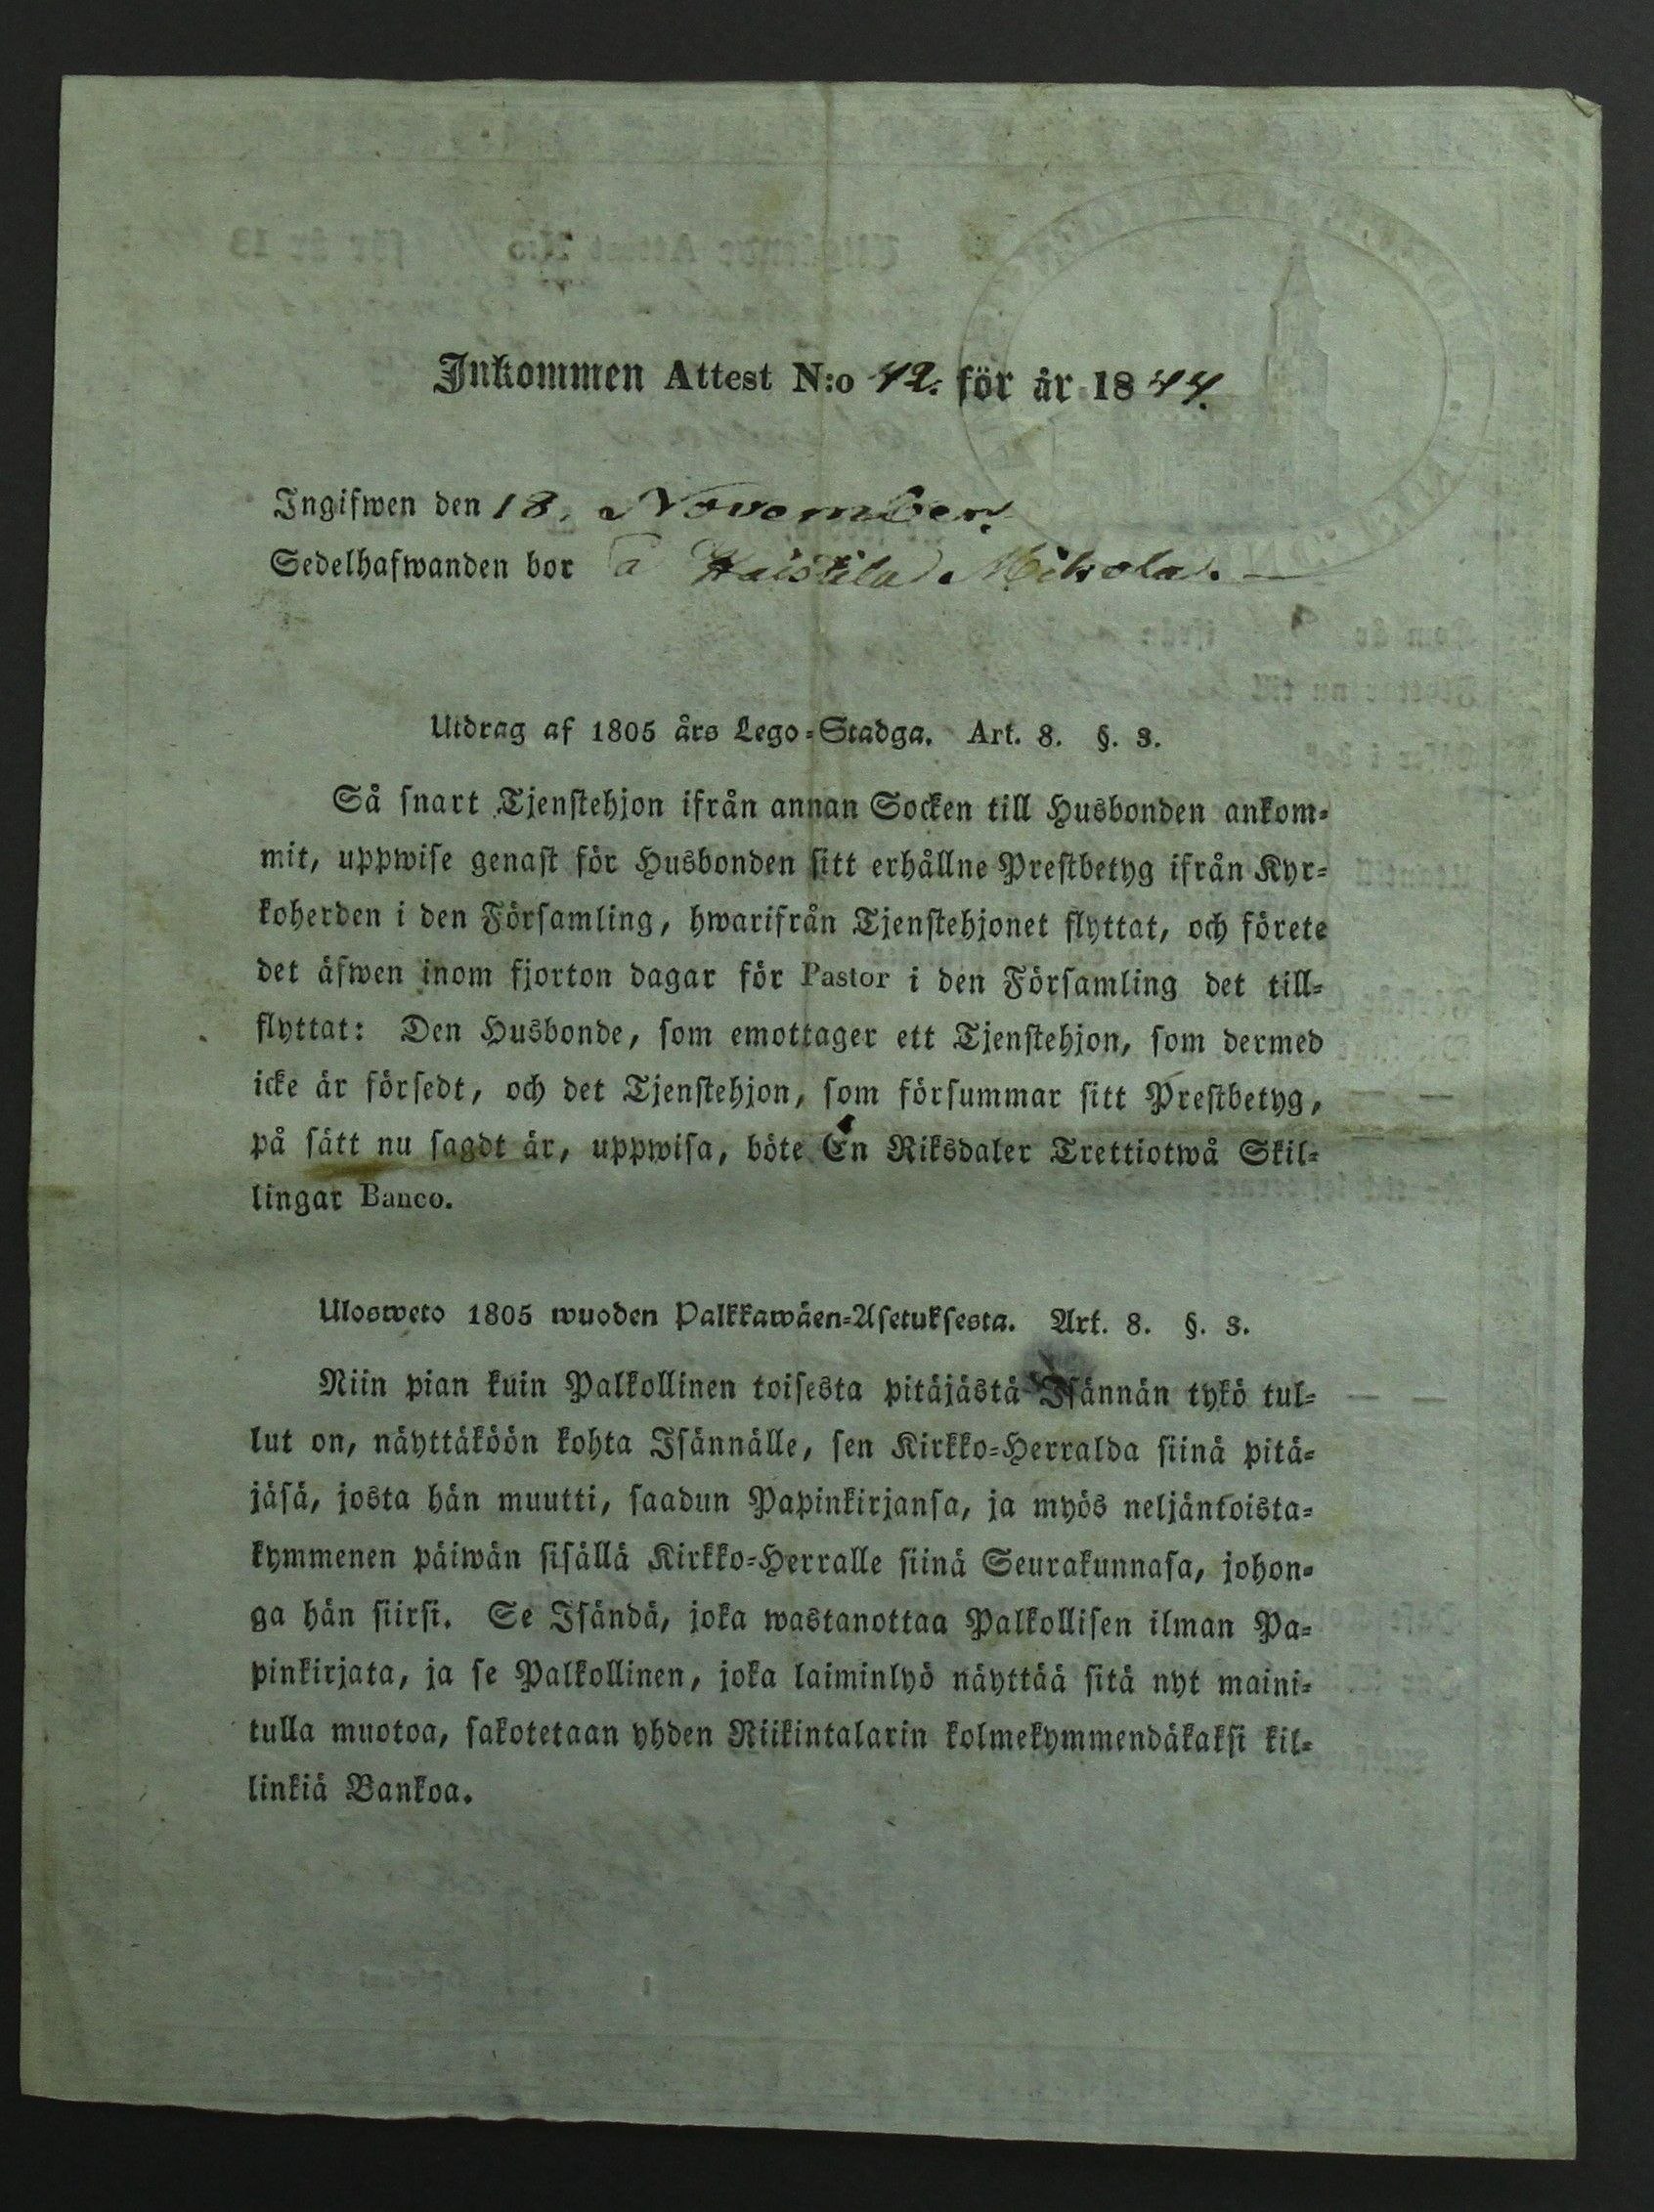 Inkommen Attest N:o 42. för år 1844.
Ingifwen den 18. November.
Sedelhafwanden bor å Haistila Mikola. —
Utdrag af 1805 års Lego-Stadga. Art. 8. §. 3.
Så snart Tjenstehjon ifrån annan Socken till Husbonden ankom-
mit, uppwise genast för Husbonden sitt erhållne Prestbetyg ifrån Kyr-
koherden i den Församling, hwarifrån Tjenstehjonet flyttat, och förete
det äfwen inom fjorton dagar för Pastor i den Församling det till-
flyttat: Den Husbonde, som emottager ett Tjenstehjon, som dermed
icke är försedt, och det Tjenstehjon, som försummar sitt Prestbetyg,
på sätt nu sagdt är, uppwisa, böte En Riksdaler Trettiotwå Skil-
lingar Banco.
Ulosweto 1805 wuoden Palkkawäen-Asetuksesta. Art. 8. §. 3.
Niin pian kuin Palkollinen toisesta pitäjästä Isännän tykö tul-
lut on, näyttäköön kohta Isännälle, sen Kirkko-Herralda siinä pitä-
jäsä, josta hän muutti, saadun Papinkirjansa, ja myös neljäntoista-
kymmenen päiwän sisällä Kirkko-Herralle siinä Seurakunnasa, johon-
ga hän siirsi. Se Isändä, joka wastanottaa Palkollisen ilman Pa-
pinkirjata, ja se Palkollinen, joka laiminlyö näyttää sitä nyt maini-
tulla muotoa, sakotetaan yhden Riikintalarin kolmekymmendäkaksi kil-
linkiä Bankoa.